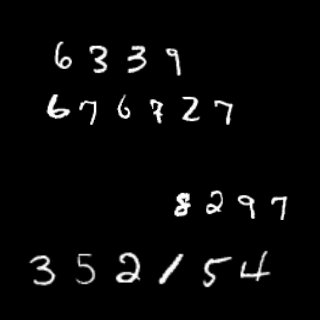 6339
676727
8297
352154